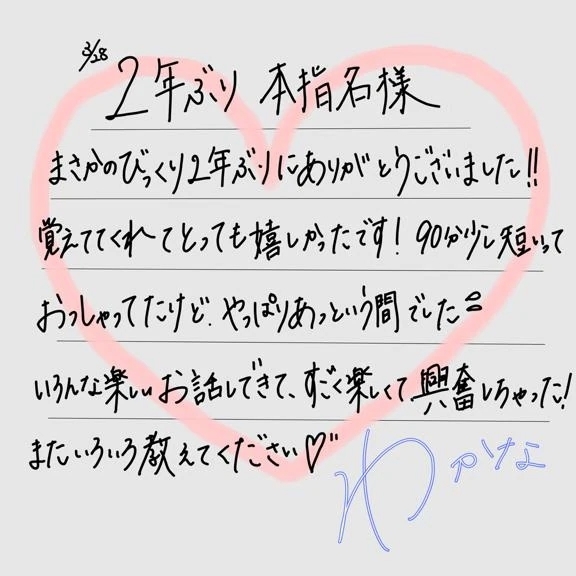 3/28
2年ぶり 本指名様
まさかのびっくり2年ぶりにありがとうございました!!
覚えててくれてとっても嬉しかったです! 90分少し短いって
おっしゃってたけど、やっぱりあっという間でした
いろんな楽しいお話しできて、すごく楽しくて興奮しちゃった!
またいろいろ教えてください♡
わかな